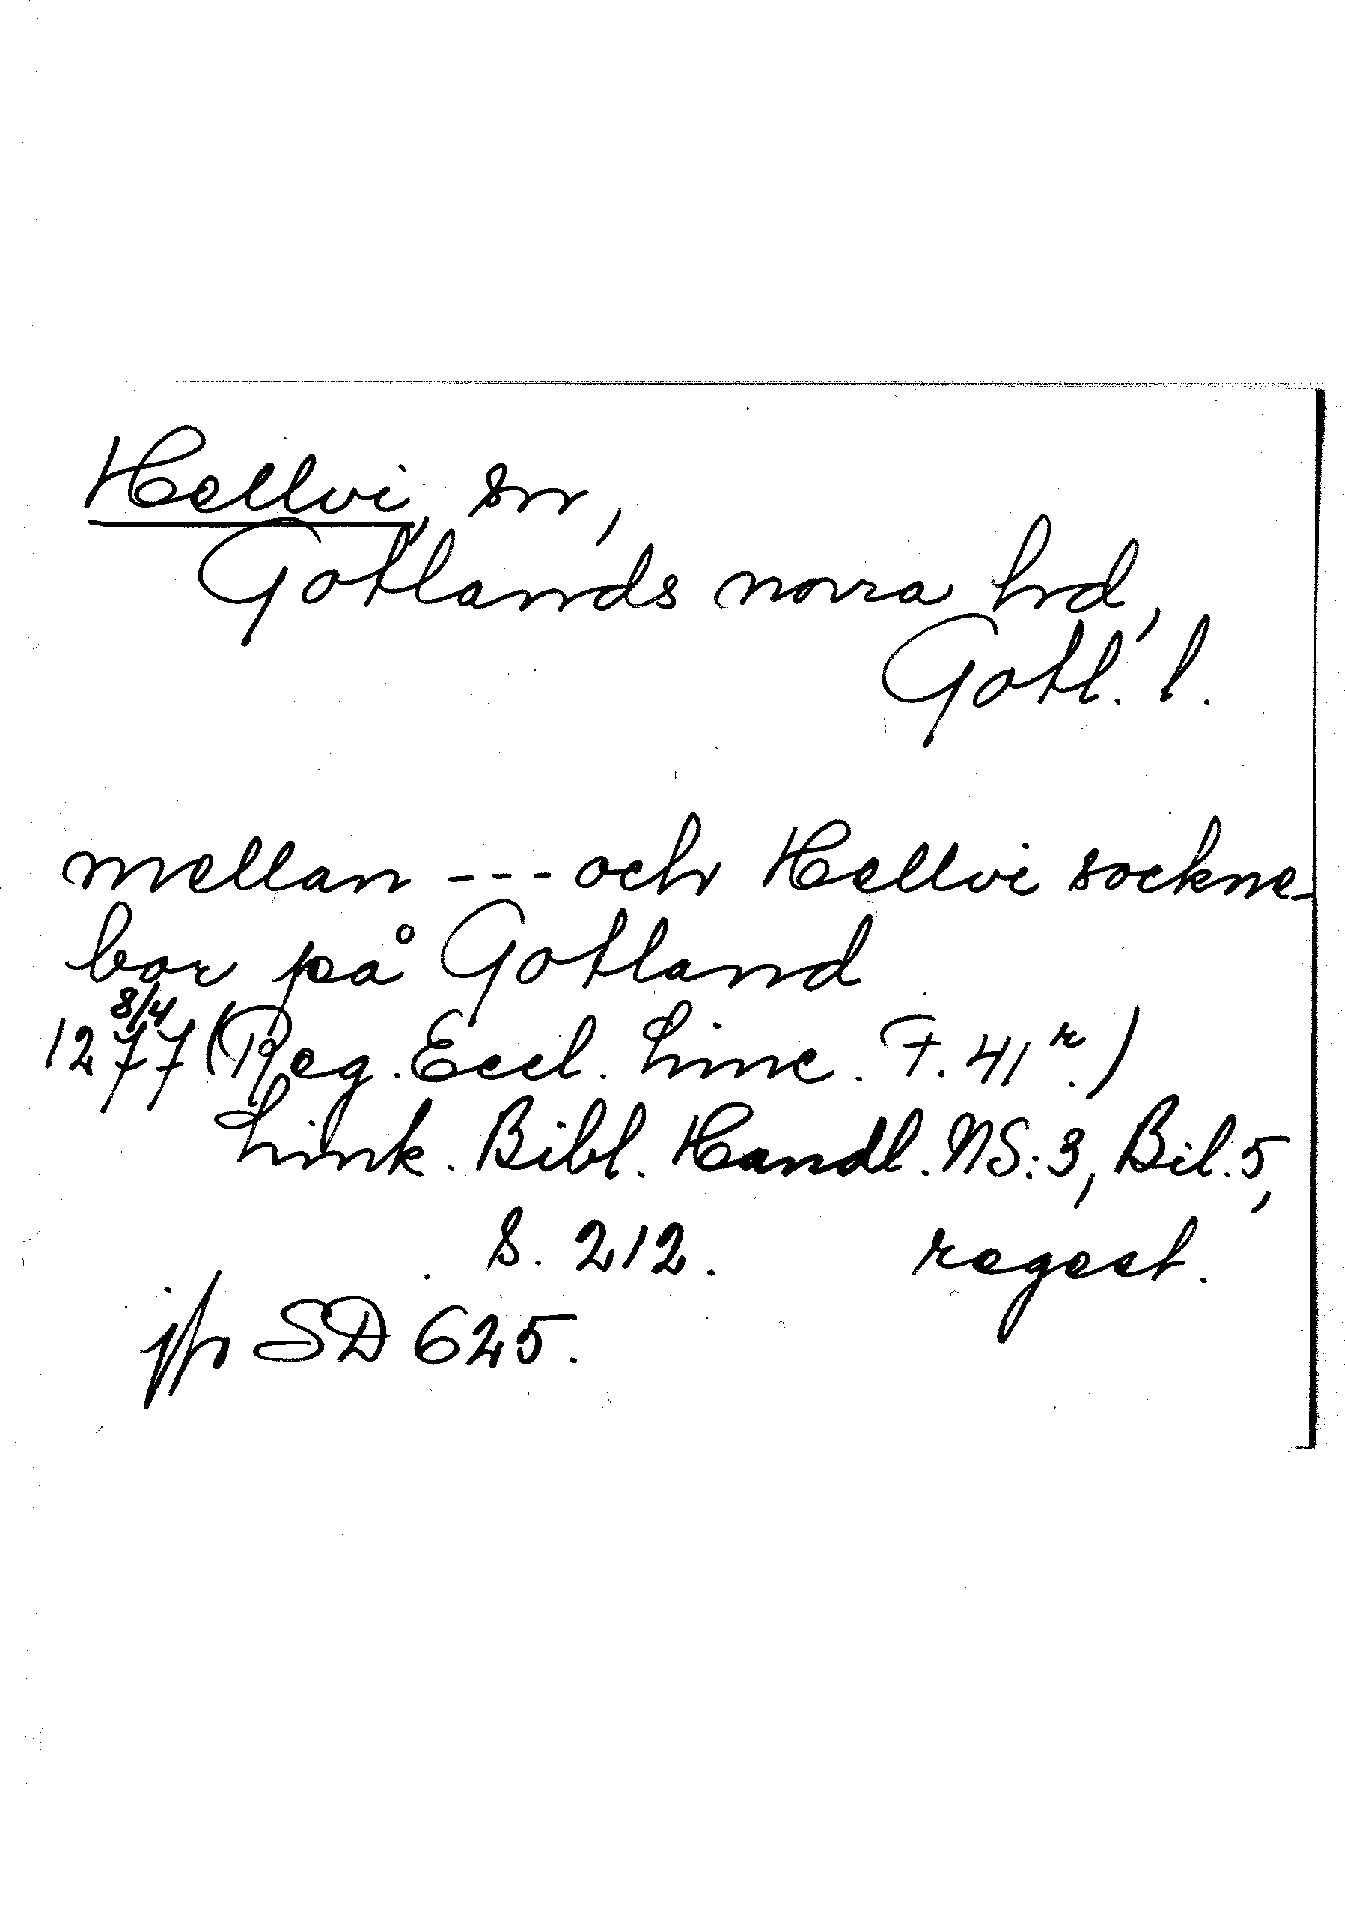 Hellvi, sn,
Gotlands norra hd,
Gotl. l.
mellan --- och Hellvi sockne-
bor på Gotland
8/4
1277 (Reg. Eccl. Linc. F. 41r.)
Link. Bibl. Handl. NS:3, Bil. 5,
s. 212. regest.
jfr SD 625.